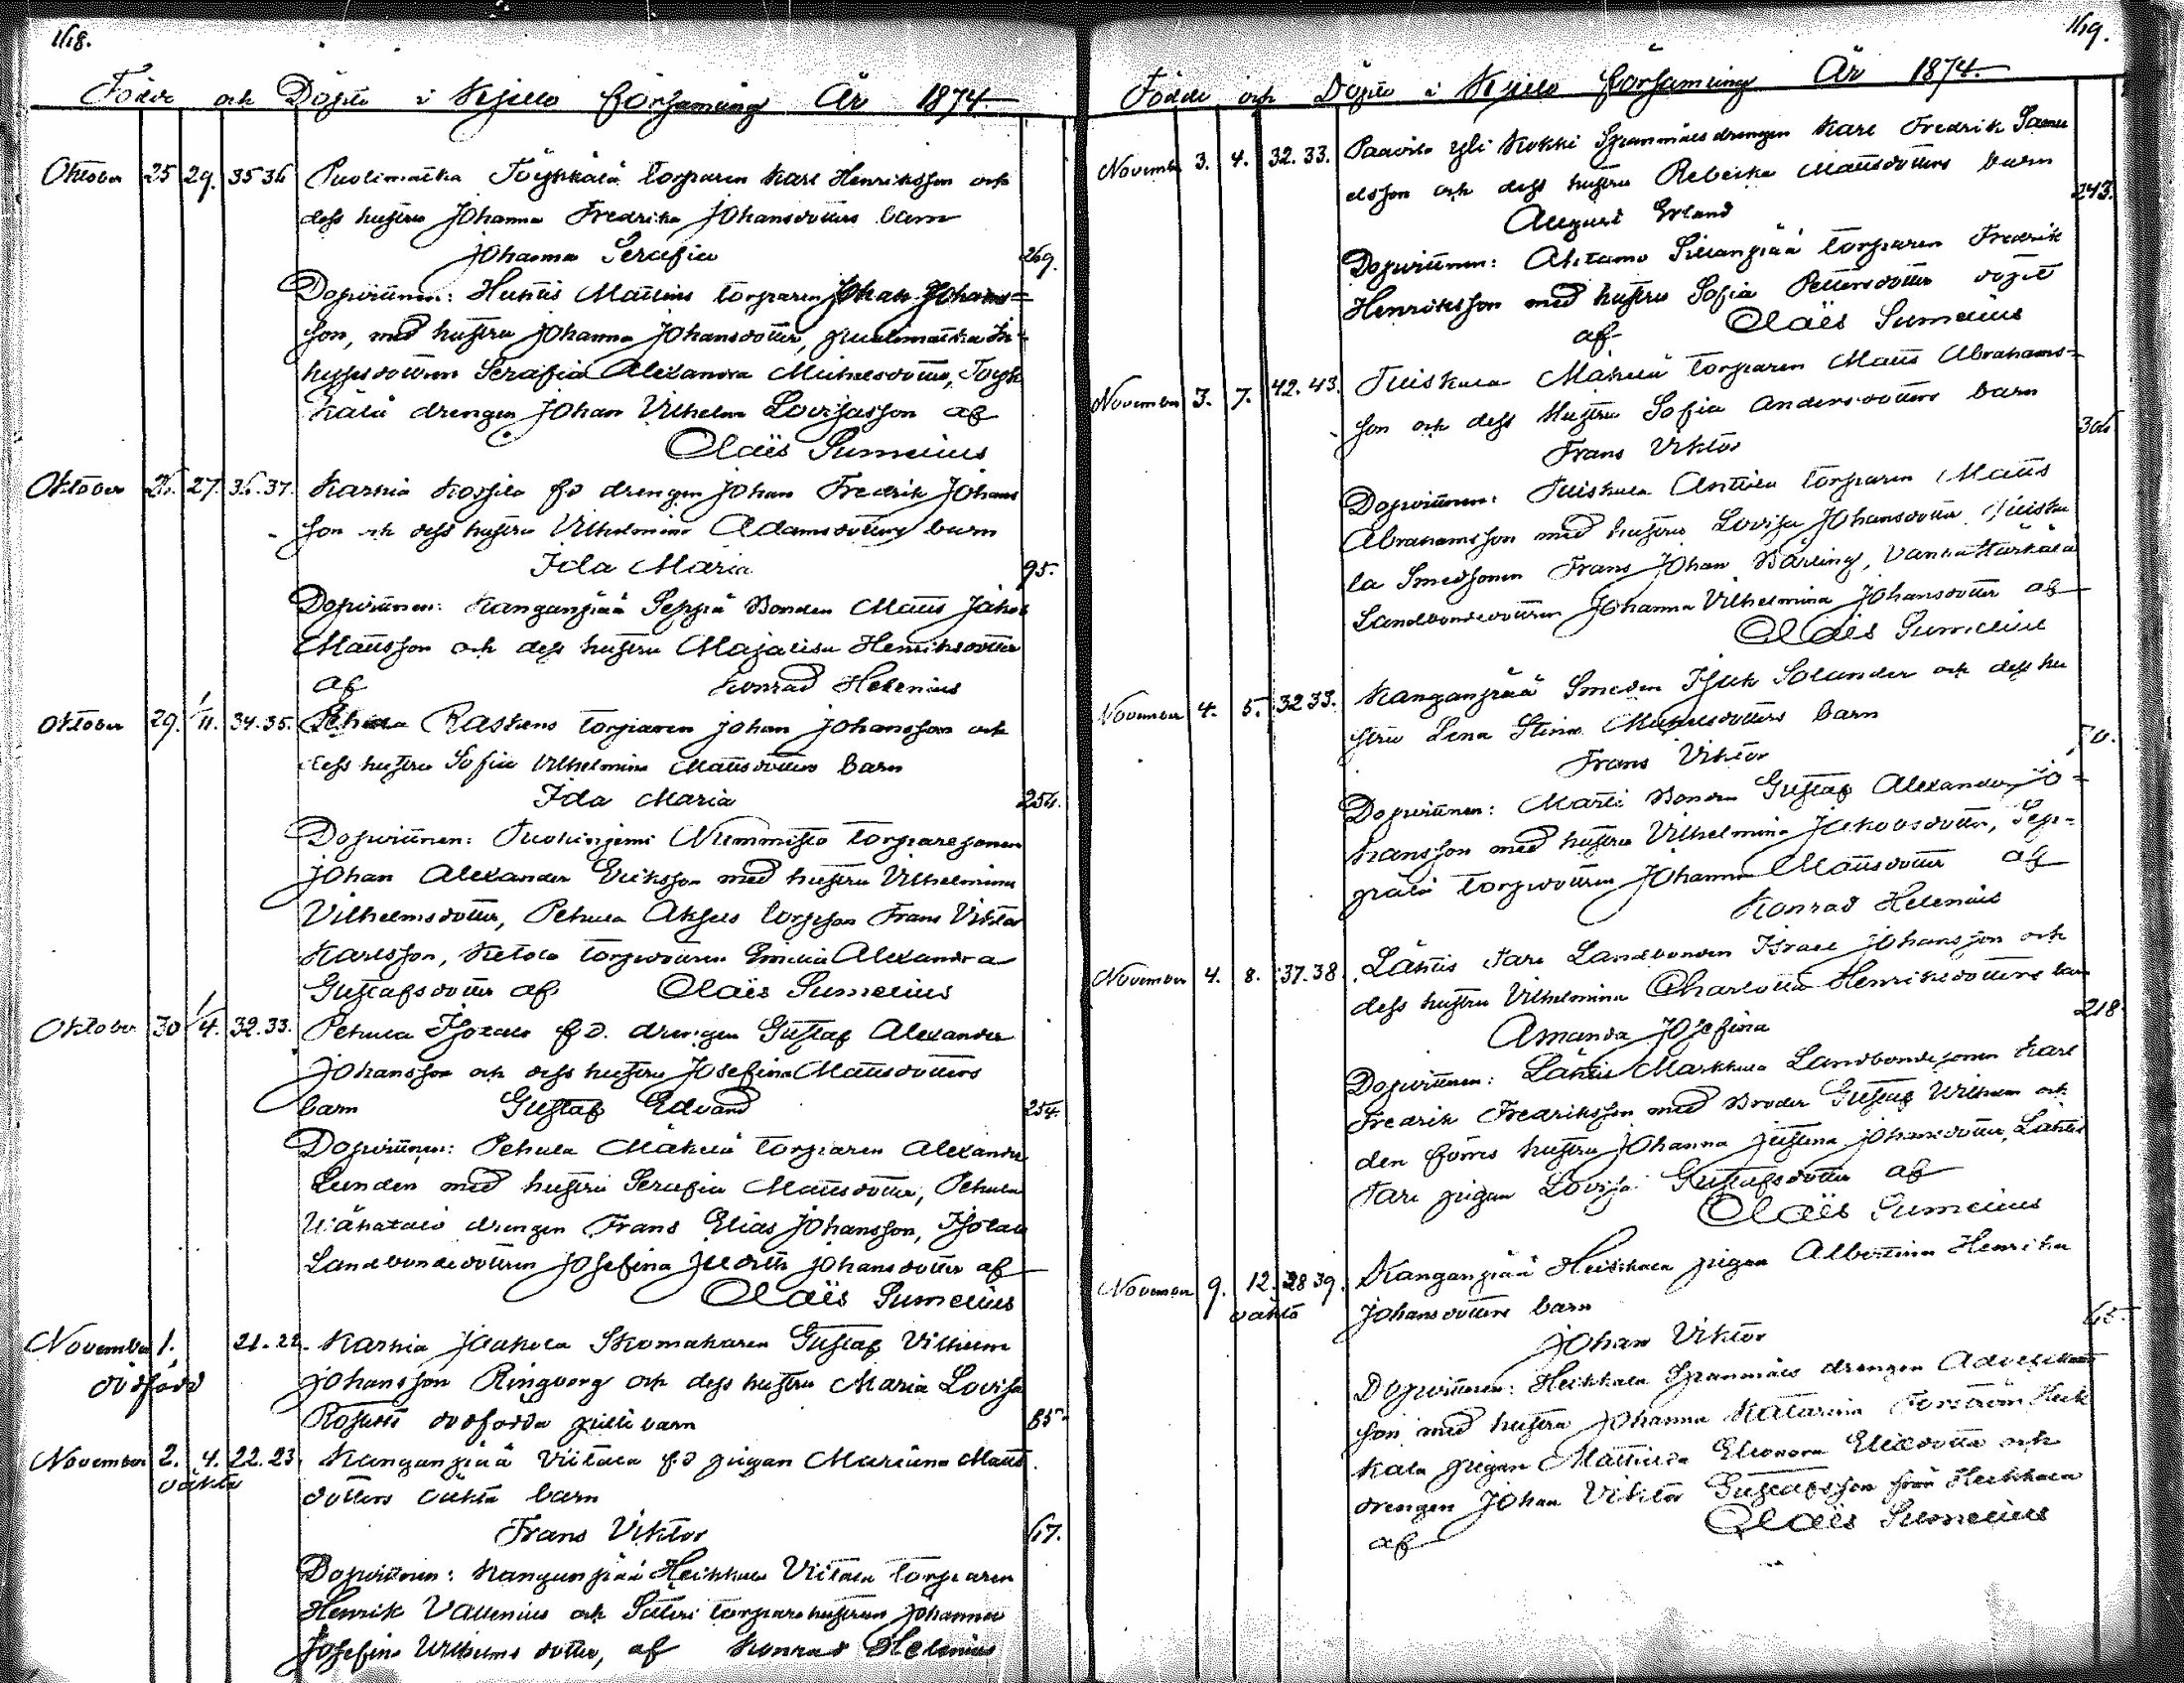 168.
Födde och Döpte i Kjulo församling År 1874.
Oktober 25 29. 35 36 Puolimatka Töykkälä torparen Karl Henriksson och
dess hustru Johanna Fredrika Johansdotters barn
Johanna Serafia
269.
Dopvittnen: Huhtis Mattins torparen Johan Johans=
son, med hustru Johanna Johansdotter, puolimatka In=
hysesdottren Serafia Alexandra Michelsdotter, Töyk
kälä drengen Johan Vilhelm Lovisasson af
Claës Sumelius
Oktober 26. 27. 36.37. Karhia Kossila fd drengen Johan Fredrik Johans
son och dess hustru Vilhelmina Adamsdotters barn
Ida Maria
95.
Dopvittnen: Kanganpää Seppä Bonden Matts Jakob
Mattsson och dess hustru Majalisa Henriksdotter
af Konrad Helenius
Oktober 29. 1/11. 34.35. Pehula Raskens torparen Johan Johansson och
dess hustru Sofia Vilhelmina Mattsdotters barn
Ida Maria
254.
Dopvittnen: Tuohiniemi Niemmisto torparesonen
Johan Alexander Eriksson med hustru Vilhelmina
Vilhelmsdotter, Pehula torpson Frans Viktor
Karlsson, Ketola torpdottren Emilia Alexandra
Gustafsdotter af Claës Sumelius
Oktober 30 1/4. 32.33. Pehula Isotalo f.d. drengen Gustaf Alexander
Johansson och dess hustru Josefina Mattsdotters
barn Gustaf Edvard
254.
Dopvittnen: Pehula Mäkelä torparen Alexander
Lunden med hustru Serafia Mattsdotter, Pehula
Vähatalo drengen Frans Elias Johansson, Isotalo
Landbondedottren Josefina Judith Johansdotter af
Claës Sumelius
November 1. 21.22. Karhia Jaakola Skomakaren Gustaf Vilhelm
dödfödd Johansson Ringborg och dess hustru Maria Lovisa
dödfödda barn
85.
November 2. 4. 22.23. Kanganpää Viitala fd pigan Mariana Matts
oäkta dotters oäkta barn
Frans Viktor
67.
Dopvittnen: Kanganpää Heikkilä Viitala torparen
Henrik Vallenius och Säteri torparehustrun Johanna
Josefina Vilhelms dotter, af Konrad Helenius
169.
Födde och Döpte i Kjulo församling År 1874.
November 3. 4. 32.33. Paavila yli Kokki Spannmålsdrengen Karl Fredrik Samu
elsson och dess hustru Rebecka Mattsdotters barn
243.
August Erland
Dopvittnen: Ahtamo Sillanpää torparen Fredrik
Henriksson med hustru Sofia Pettersdotter döpt
af Claës Sumelius
November 3. 7. 42.43. Tuiskula Mäkelä torparen Matts Abrahams=
son och dess hustru Sofia Andersdotters barn
306.
Frans Viktor
Dopvittnen: Tuiskula Anttila torparen Matts
Abrahamsson med hustru Lovisa Johansdotter, Tuisku
la Smedsonen Frans Johan Bärling, Vanha Kärkälä
Landbondedottren Johanna Vilhelmina Johansdotter af
Claës Sumelius
November 4. 5. 32 33. Kanganpää Smeden Isak Solander och dess hu
stru Lena Stina Michelsdotters barn
50.
Frans Viktor
Dopvittnen: Martti Bonden Gustaf Alexander Jo=
hansson med hustru Vilhelmina Jakobsdotter, Sep=
pälä torpdottren Johanna Mattsdotter af
Konrad Helenius
November 4. 8. 37.38. Lähtis Tari Landbonden Israel Johansson och
dess hustru Vilhelmina Charlotta Henriksdotters barn
218.
Amanda Josefina
Dopvittnen: Lähtis Markkula Landbondesonen Karl
Fredrik Fredriksson med Broder Gustaf Vilhelm och
den förres hustru Johanna Justina Johansdotter, Lähtis
Tari pigan Lovisa Gustafsdotter af
Claës Sumelius
November 9. 12. 38 39. Kanganpää Heikkilä pigan Albertina Henrika
oäkta Johansdotters barn
65.
Johan Viktor
Dopvittnen: Heikkala Spannmåls drengen
son med hustru Johanna Katarina Forström Heik
kala pigan Mathilda Eleonora Eliædotter och
drengen Johan Viktor Gustafsson från Heikkala
af Claës Sumelius